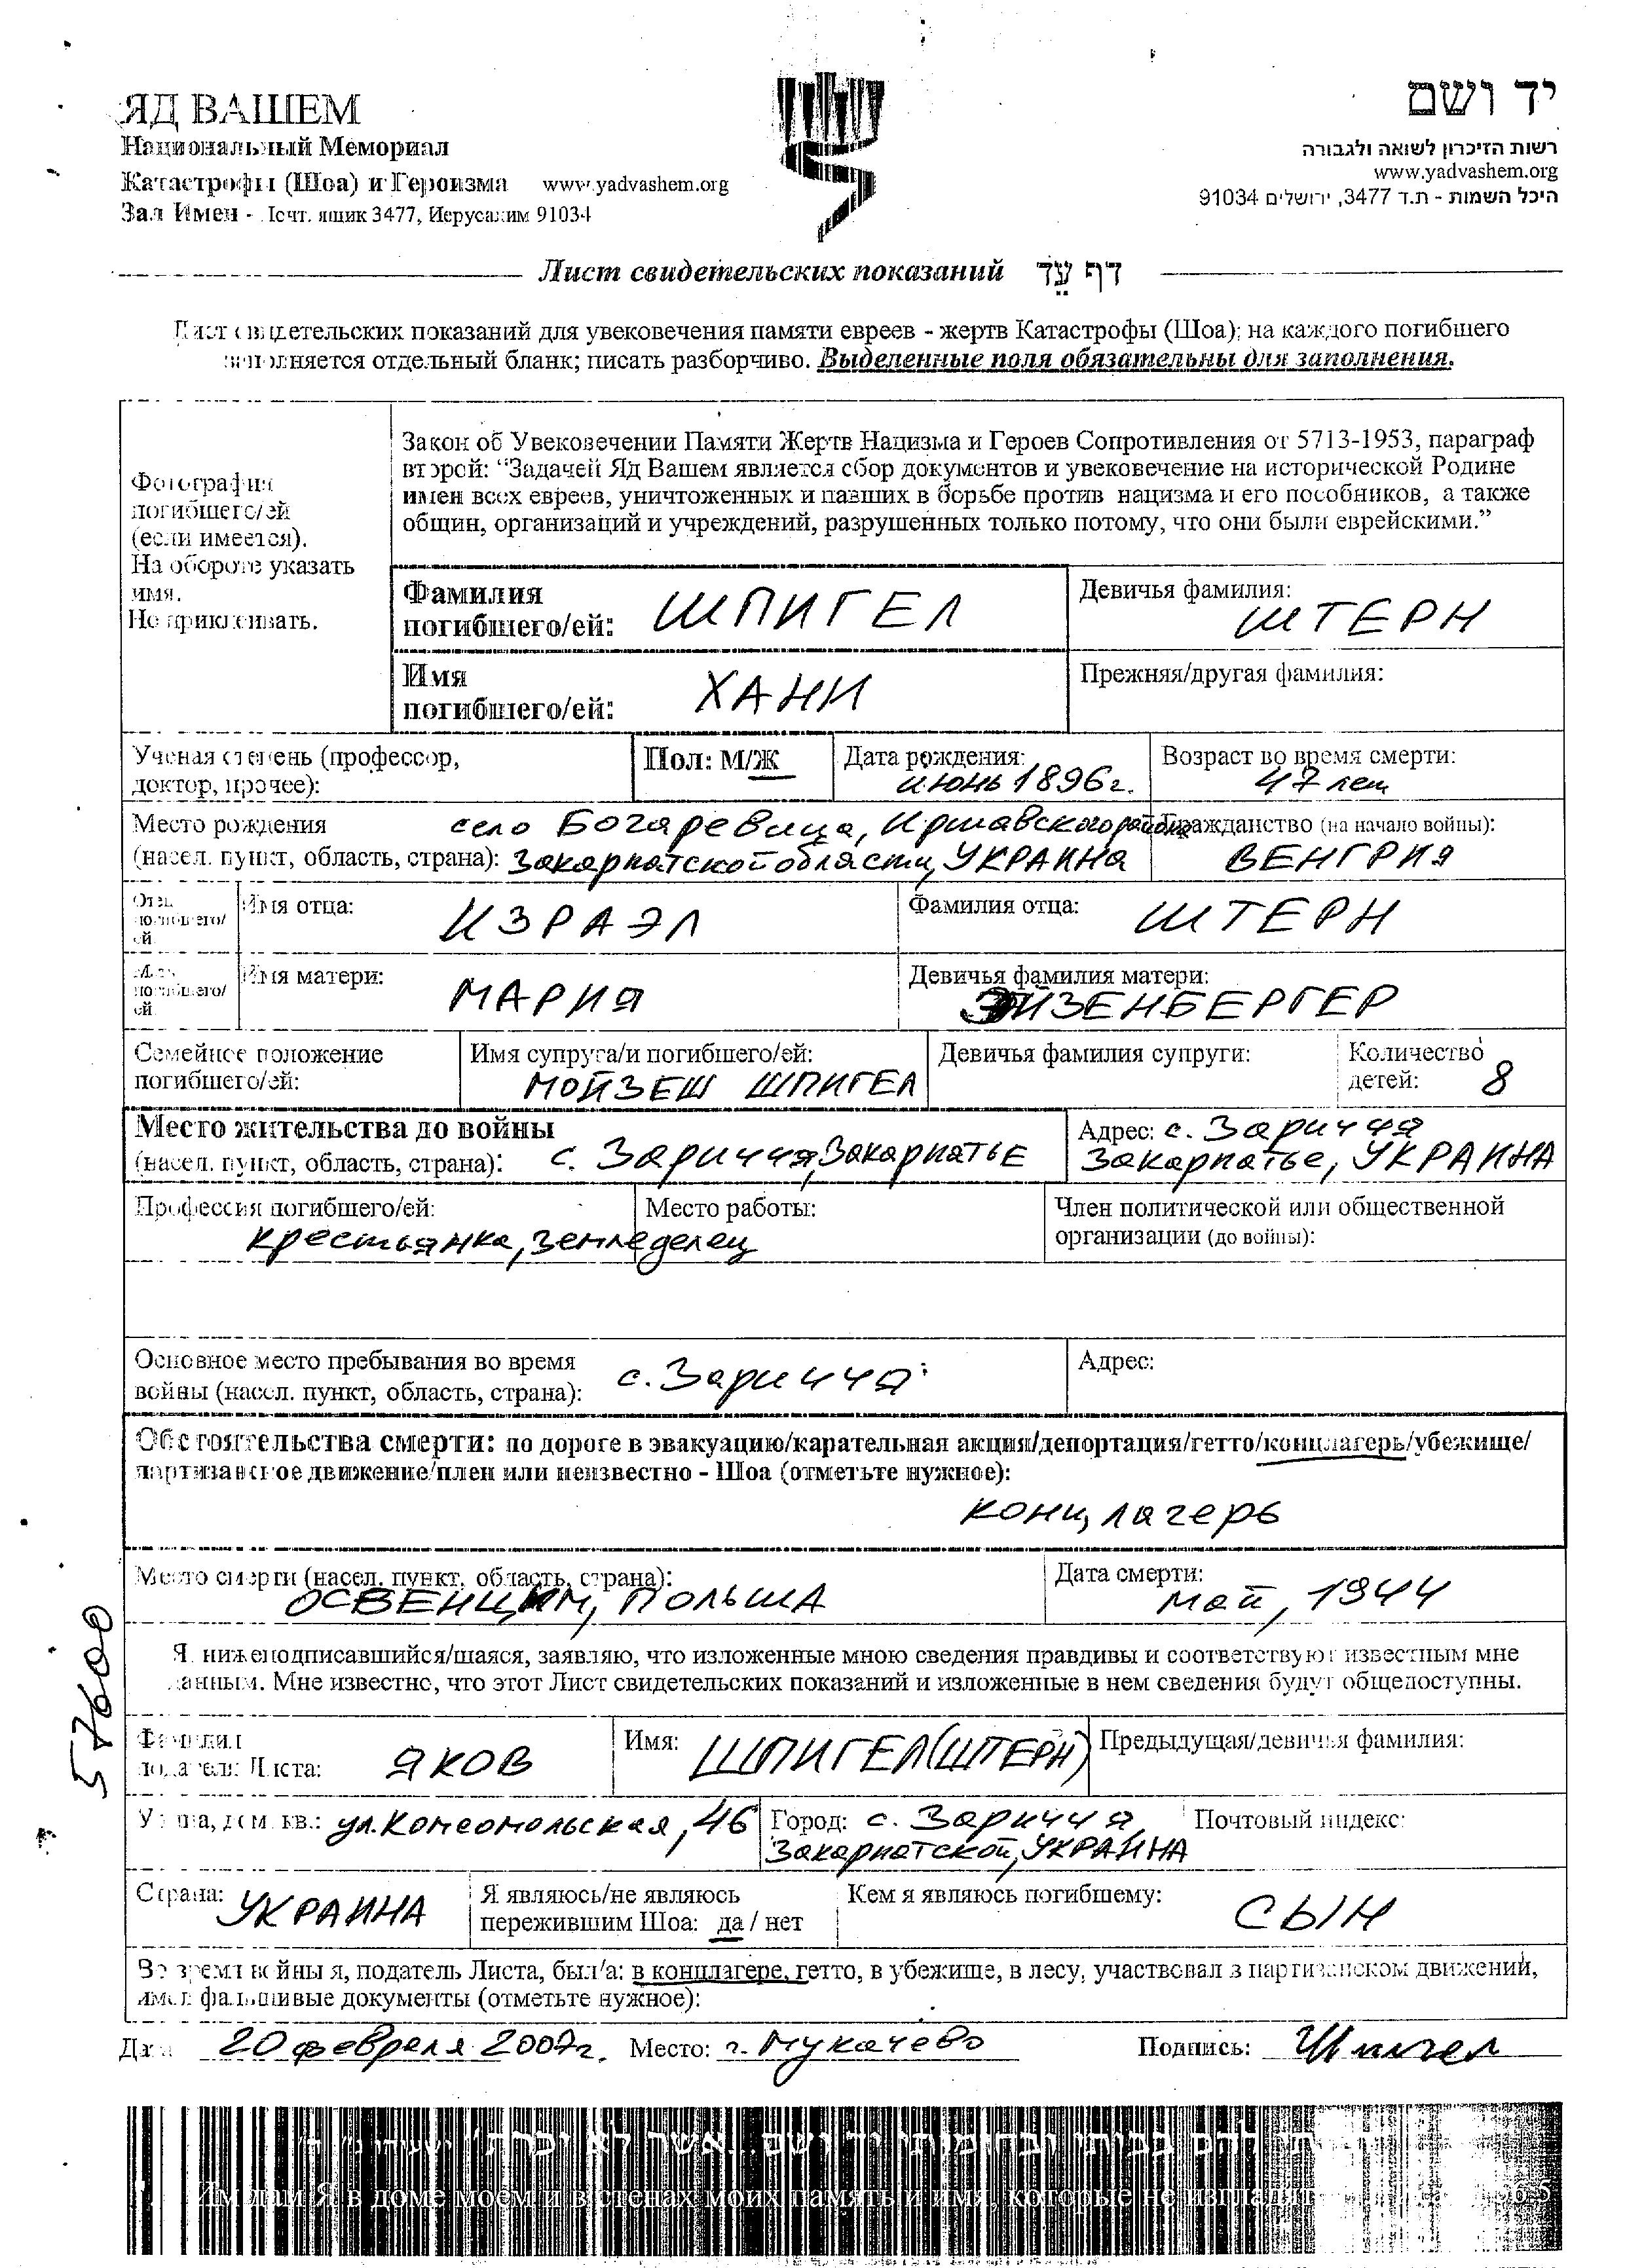 ЯД ВАШЕМ
Национальный Мемориал
Катастрофы (Шоа) и Героизма www.yadvashem.org
Зал Имен - Почт. ящик 3477, Иерусалим 91034
יד ושם
רשות הזיכרון לשואה ולגבורה
www.yadvashem.org
היכל השמות - ת.ד 3477, ירושלים 91034
Лист свидетельских показаний דף עֵד
Лист свидетельских показаний для увековечения памяти евреев - жертв Катастрофы (Шоа); на каждого погибшего
заполняется отдельный бланк; писать разборчиво. Выделенные поля обязательны для заполнения.
Фотография
погибшего/ей
(если имеется).
На обороте указать
имя.
Не приклеивать.
Закон об Увековечении Памяти Жертв Нацизма и Героев Сопротивления от 5713-1953, параграф
второй: “Задачей Яд Вашем является сбор документов и увековечение на исторической Родине
имен всех евреев, уничтоженных и павших в борьбе против нацизма и его пособников, а также
общин, организаций и учреждений, разрушенных только потому, что они были еврейскими.”
Фамилия
погибшего/ей: ШПИГЕЛ
Девичья фамилия:
ШТЕРН
Имя
погибшего/ей: ХАНИ
Прежняя/другая фамилия:
Ученая степень (профессор,
доктор, прочее):
Пол: М/Ж
Дата рождения:
июнь 1896г.
Возраст во время смерти:
47 лет
Место рождения село Богаревица, Иршавского района
(насел. пункт, область, страна): Закарпатской области, УКРАИНА
Гражданство (на начало войны):
ВЕНГРИЯ
Отец
погибшего/
ей
Имя отца: ИЗРАЭЛ
Фамилия отца: ШТЕРН
Мать
погибшего/
ей
Имя матери: МАРИЯ
Девичья фамилия матери:
ЭЙЗЕНБЕРГЕР
Семейное положение
погибшего/ей:
Имя супруга/и погибшего/ей:
МОЙЗЕШ ШПИГЕЛ
Девичья фамилия супруги:
Количество
детей: 8
Место жительства до войны
(насел. пункт, область, страна): с. Заричча, Закарпатье
Адрес: с. Заричча
Закарпатье, УКРАИНА
Профессия погибшего/ей:
крестьянка, земледелец
Место работы:
Член политической или общественной
организации (до войны):
Основное место пребывания во время
войны (насел. пункт, область, страна): с. Заричча
Адрес:
Обстоятельства смерти: по дороге в эвакуацию/карательная акция/депортация/гетто/концлагерь/убежище/
партизанское движение/плен или неизвестно - Шоа (отметьте нужное):
концлагерь
Место смерти (насел. пункт, область, страна):
ОСВЕНЦИМ, ПОЛЬША
Дата смерти:
май, 1944
Я, нижеподписавшийся/шаяся, заявляю, что изложенные мною сведения правдивы и соответствуют известным мне
данным. Мне известно, что этот Лист свидетельских показаний и изложенные в нем сведения будут общедоступны.
57600
Фамилия
подателя Листа: ЯКОВ
Имя: ШПИГЕЛ (ШТЕРН)
Предыдущая/девичья фамилия:
Улица, дом, кв.: ул. Комсомольская, 46
Город: с. Заричча
Закарпатской, УКРАИНА
Почтовый индекс:
Страна: УКРАИНА
Я являюсь/не являюсь
пережившим Шоа: да / нет
Кем я являюсь погибшему:
СЫН
Во время войны я, податель Листа, был/а: в концлагере, гетто, в убежище, в лесу, участвовал в партизанском движений,
имел фальшивые документы (отметьте нужное):
Дата 20 февраля 2007г. Место: г. Мукачево Подпись: Шпигел
Им дам Я в доме моем и в стенах моих память и имя, которые не изгладятся